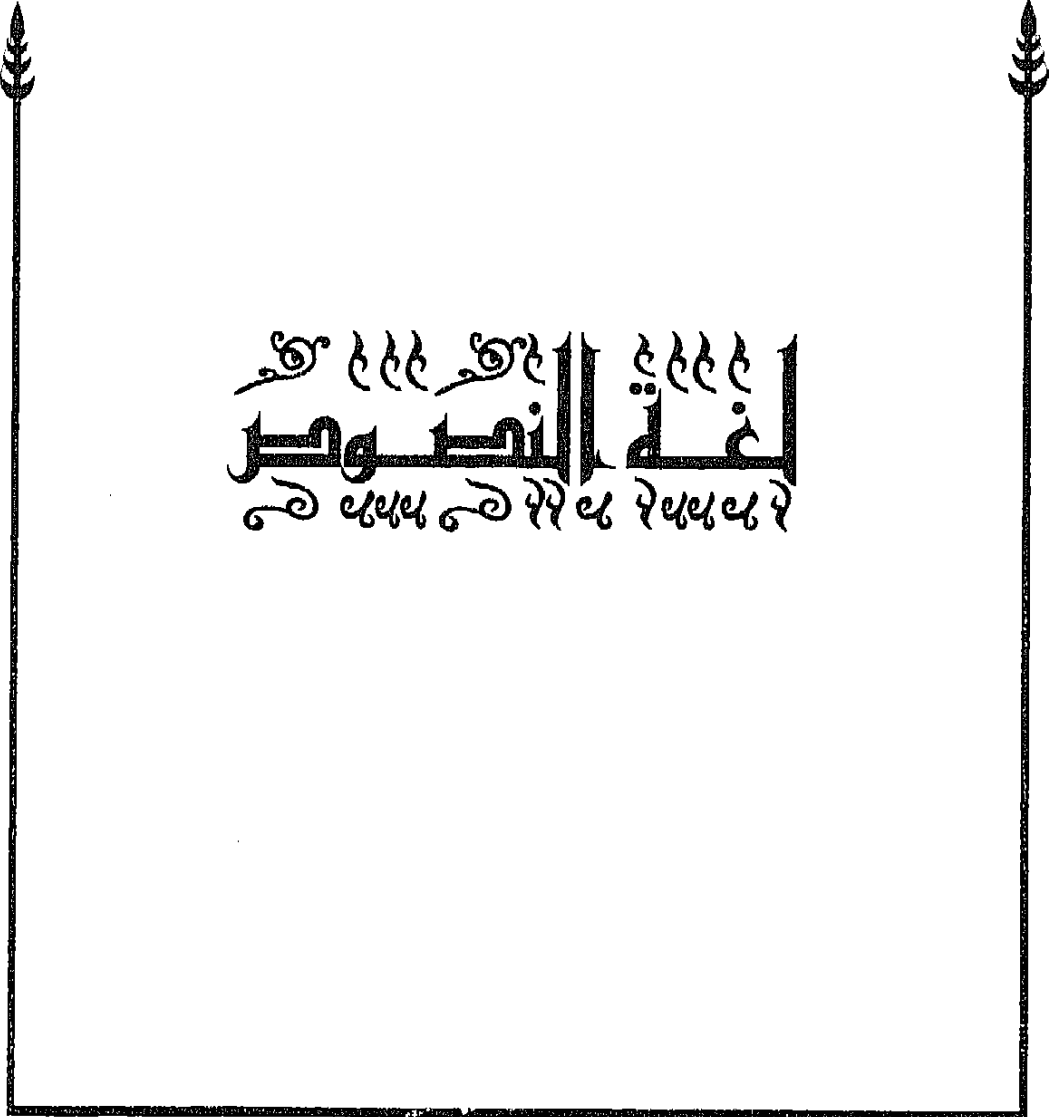 لغة النصوص